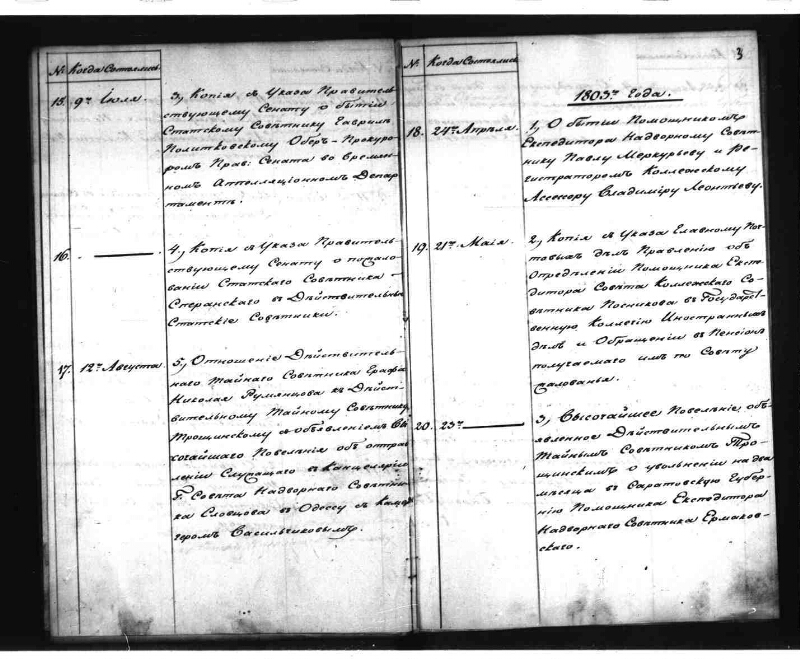 № Когда Состоялись.
15. 9го Iюля. 3, Копiя съ Указа Правитель-
ствующему Сенату о бытiи
Статскому Совѣтнику Гаврилѣ
Политковскому Оберъ-Прокуро-
ромъ Прав: Сената во Времен-
номъ Аппелляцiонномъ Депар-
таментѣ.
16. 4, Копiя съ Указа Правитель-
ствующему Сенату о пожало-
ванiи Статскаго Совѣтника
Сперанскаго въ Дѣйствительные
Статскiе Совѣтники.
17. 12го Августа. 5, Отношенiе Дѣйствитель-
наго Тайнаго Совѣтника Графа
Николая Румянцова къ Дѣйст-
вительному Тайному Совѣтнику
Трощинскому съ объявленiемъ Вы-
сочайшаго Повелѣнiя объ отправ-
ленiи Служащаго въ Канцелярiи
Г. Совѣта Надворнаго Совѣтни-
ка Словцова въ Одессу съ Каме-
геромъ Васильчиковымъ.
3
№ Когда Состоялись
1803го Года.
18. 24го Апрѣля. 1, О бытiи Помощникомъ
Експедитора Надворному Совѣт-
нику Павлу Меркурьеву и Ре-
гистраторомъ Коллежскому
Ассесору Владимiру Леонтьеву.
19. 21го Маiя. 2, Копiя съ Указа Главному Поч-
товыхъ дѣлъ Правленiю объ
Опредѣленiи Помощника Експе-
дитора Совѣта Коллежскаго Со-
вѣтника Посникова въ Государст-
венную Коллегiю Иностранныхъ
дѣлъ и Обращенiи въ Пенсiонъ
получаемаго имъ по Совѣту
жалованья.
20. 23го 3, Высочайшее Повелѣнiе, объ-
явленное Дѣйствительнымъ
Тайнымъ Совѣтникомъ Тро-
щинскимъ о увольненiи на два
мѣсяца въ Саратовскую Губер-
нiю Помощника Експедитора
Надворнаго Совѣтника Ермаков-
скаго.